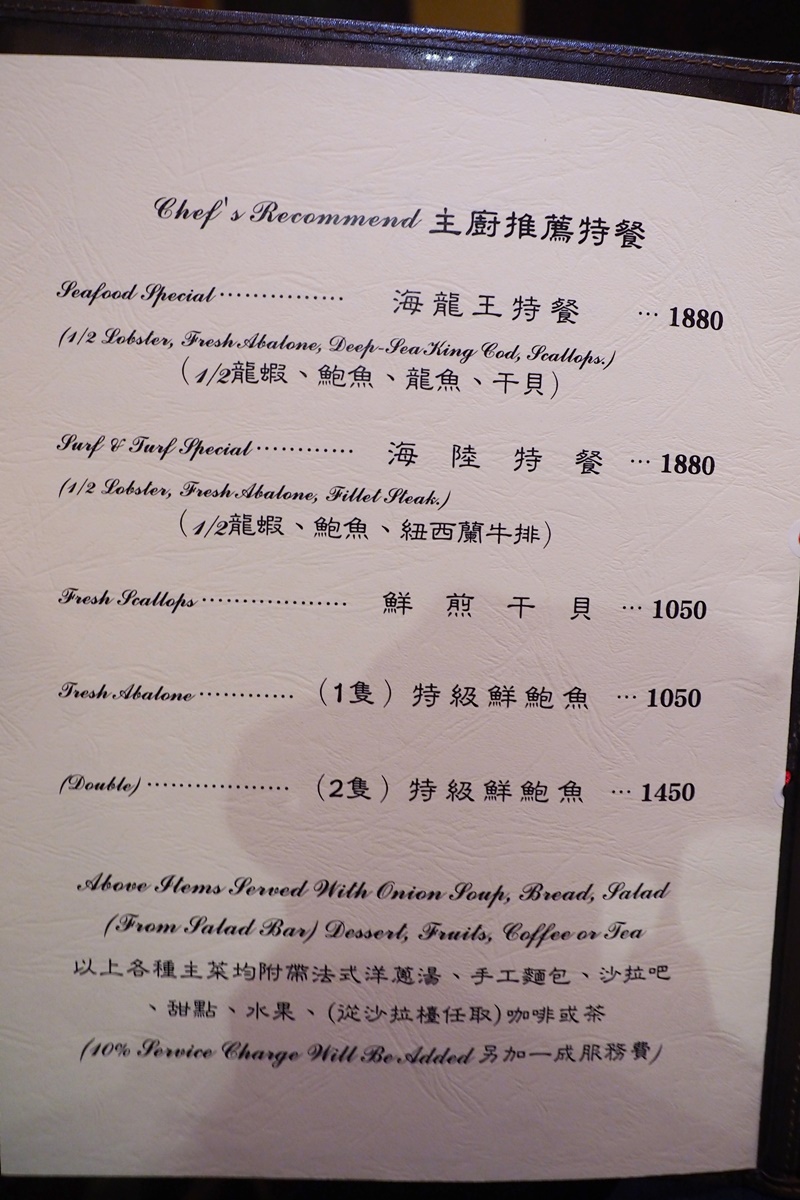 Chef's Recommend 主廚推薦特餐
Seafood Special ··············· 海龍王特餐 ··· 1880
(1/2 Lobster, Fresh Abalone, Deep-Sea King Cod, Scallops.)
(1/2龍蝦、鮑魚、龍魚、干貝)
Surf & Turf Special ············ 海陸特餐 ··· 1880
(1/2 Lobster, Fresh Abalone, Fillet Steak.)
(1/2龍蝦、鮑魚、紐西蘭牛排)
Fresh Scallops ·················· 鮮煎干貝 ··· 1050
Fresh Abalone ············ (1隻) 特級鮮鮑魚 ··· 1050
(Double) ·················· (2隻) 特級鮮鮑魚 ··· 1450
Above Items Served With Onion Soup, Bread, Salad
(From Salad Bar) Dessert, Fruits, Coffee or Tea
以上各種主菜均附帶法式洋蔥湯、手工麵包、沙拉吧
、甜點、水果、(從沙拉檯任取)咖啡或茶
(10% Service Charge Will Be Added 另加一成服務費)